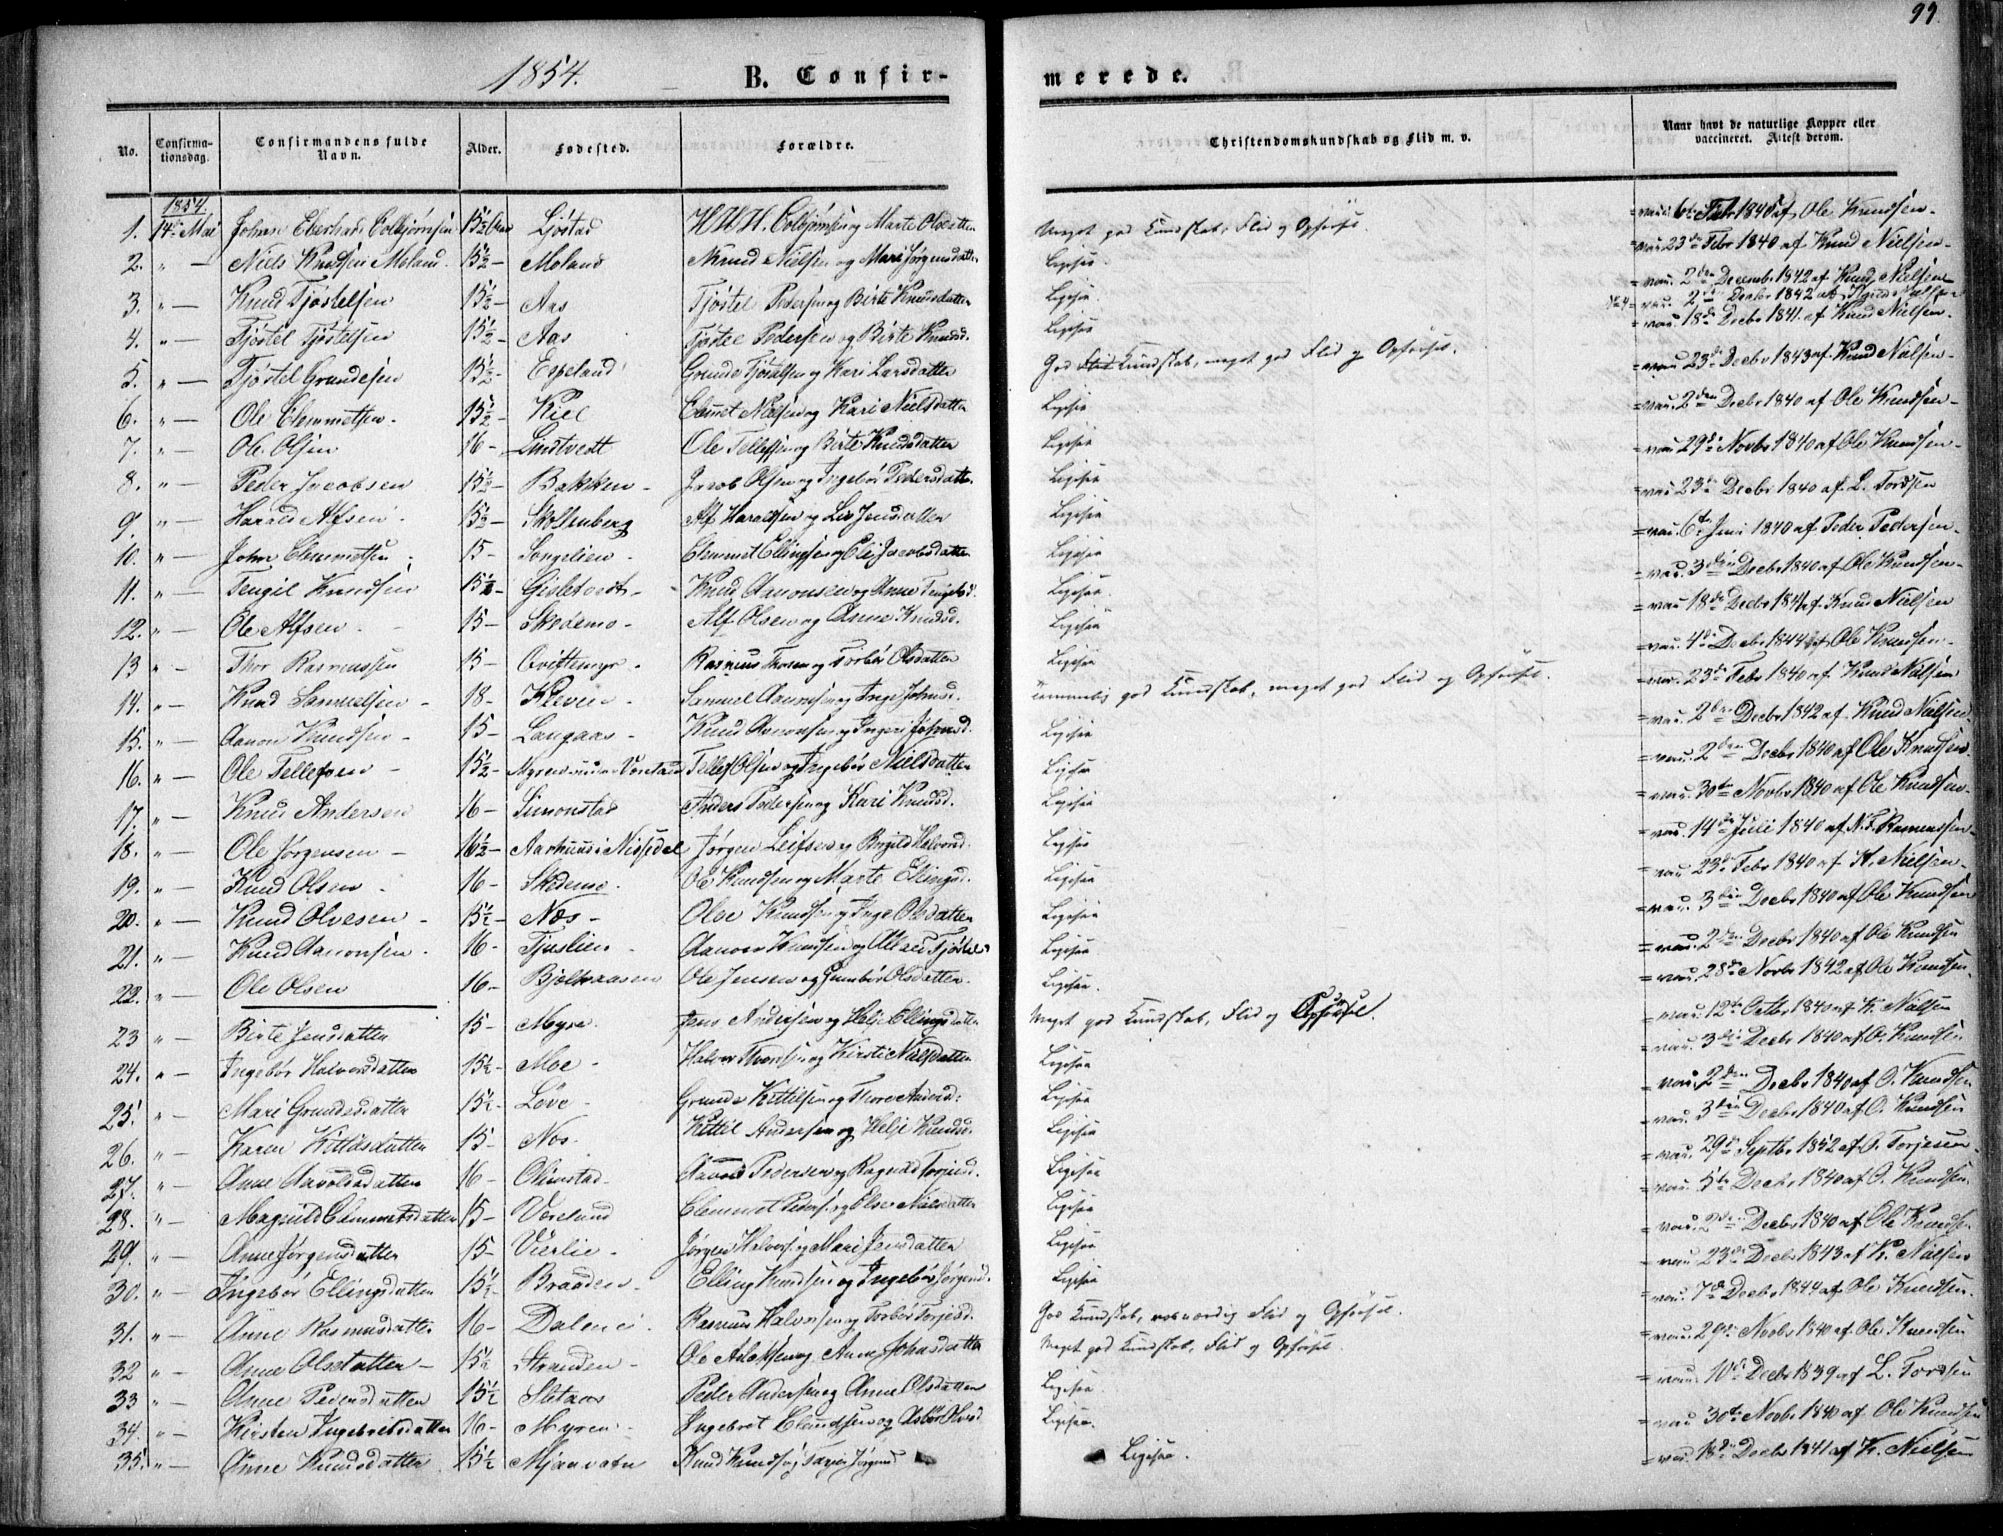 99.
1854. B. Confir-merede.
No. Confirmationsdag. Confirmandens fulde Navn. Alder. Fødested. Forældre. Christendomskundskab og Flid m. v. Naar havt de naturlige Kopper eller vaccineret. Attest derom.
1854.
1. 14de Mai Johan Eberhard Colbjørnsen 15½ Aar Ljøstad H.W.H. Colbjørnsen og Marte Olsdatter Meget god Kundskab, Flid og Opførsel. = vac. 6te Febr 1840 af Ole Knudsen.
2. " — Niels Knudsen Moland 15½ - Moland Knud Nielsen og Mari Jørgensdatter Ligesaa = vac. 23de Febr 1840 af Knud Nielsen
3. " — Knud Tjøstelsen 15½ - Aas Tjøstel Pedersen og Birte Knudsdatter Ligesaa = vac. 2den Decembr 1842 af Knud Nielsen
No 4 = vac. 2den Decbr 1842 af Knud Nielsen
4. " — Tjøstel Tjøstelsen 15½ - Aas Tjøstel Pedersen og Birte Knudsd. Ligesaa = vac. 18de Decbr 1841. af Knud Nielsen.
5. " — Tjøstel Grundesen 15½ - Espeland Grunde Tjøstelsen og Kari Larsdatter God Flid Kundskab, meget god Flid og Opførsel. = vac. 23de Decbr 1843 af Knud Nielsen
6. " — Ole Clemmetsen 15½ - Kiel Clemet Nielsen og Kari Nielsdatter Ligesaa = vac. 2den Decbr 1840 af Ole Knudsen
7. " — Ole Olsen 16 - Lindtvedt Ole Tellefsen og Birte Knudsdatter Ligesaa = vac. 29de Novbr 1840 af Ole Knudsen
8. " — Peder Jacobsen 15½ - Bakken Jacob Olsen og Ingebør Pedersdatter Ligesaa = vac. 23de Decbr 1840 af L. Tordsen
9. " — Harald Alfsen 15½ - Skottenberg Alf Haraldsen og Liv Jensdatter Ligesaa = vac. 6te Juni 1840 af Peder Pedersen
10. " — John Clemmetsen 15 - Songelien Clemmet Ellingsen og Eli Jacobsdatter Ligesaa = vac. 3die Decbr 1840 af Ole Knudsen
11. " — Tengil Knudsen 15½ - Knud Aanonsen og Anne Tengelsd. Ligesaa = vac. 18de Decbr 1841 af Knud Nielsen
12. " — Ole Alfsen 15 - Skedemo Alf Olsen og Anne Knudsd. Ligesaa = vac. 4de Decbr 1844 af Ole Knudsen
13 " — Thor Rasmussen 15 - Qvittemyr Rasmus Thorsen og Torbør Olsdatter Ligesaa = vac. 23de Febr 1840 af Knud Nielsen
14. " — Knud Samuelsen 18 - Kleven Samuel Aanonsen og Inge Johnsd. temmelig god Kundskab, meget god Flid og Opførsel. = vac. 2den Decbr 1842 af Knud Nielsen
15. " — Aanon Knudsen 15 - Langaas Knud Aanonsen og Ingeri Johnsd. Ligesaa = vac. 2den Decbr 1840 af Ole Knudsen
16. " — Ole Tellefsen 15½ - Myren under Voreland Tellef Olsen og Ingebør Nielsdatter Ligesaa = vac. 30te Novbr 1840 af Ole Knudsen
17. " — Knud Andersen 16 - Simonstad Anders Pedersen og Kari Knudsd. Ligesaa = vac. 14de Juli 1840 af N. F. Rasmussen
18. " — Ole Jørgensen 16½ - Aarhuus i Nissedal Jørgen Leifsen og Bergild Halvorsd. Ligesaa = vac. 23de Febr 1840 af K. Nielsen
19. " — Knud Olsen 16 - Skedemo Ole Knudsen og Marte Ellingsd. Ligesaa = vac. 3die Decbr 1840 af Ole Knudsen
20. " — Knud Olvesen 15½ - Næs Olve Knudsen og Inge Olsdatter Ligesaa = vac. 2den Decbr 1840 af Ole Knudsen
21. " — Knud Aanonsen 16 - Tjuslien Aanon Knudsen og Tjøstels Ligesaa = vac. 28de Novbr 1842 af Ole Knudsen
22. " — Ole Olsen 16 - Bjelkaasen Ole Jensen og Gunbør Olsdatter Ligesaa = vac. 12te Octbr 1840 af K. Nielsen
23 " — Birte Jensdatter 15 - Myre Jens Andersen og Helje Ellingsdatter Meget god Kundskab, Flid og Opførsel. = vac. 3die Decbr 1840 af O. Knudsen
24. " — Ingebør Halvorsdatter 15½ - Moe Halvor Thorsen og Kirsti Nielsdatter Ligesaa = vac. 2den Decbr 1840 af O. Knudsen
25. " — Mari Grundesdatter 15½ - Løve Grunde Kittilsen og Thore Andersd: Ligesaa = vac. 3die Decbr 1840 af O. Knudsen
26. " — Karen Kittilsdatter 15 - Næs Kittil Andersen og Helje Knudsd. Ligesaa = vac. 29de Septbr 1852 af O. Torjesen
27. " — Anne Aavoldsdatter 16 - Olimstad Aavold Pedersen og Ragnild Torjusd. Ligesaa = vac. 5te Decbr 1840 af O. Knudsen
28. " — Magnild Clemmetsdatter 15 - Voreland Clemmet Peders. og Else Nielsdatter Ligesaa = vac. 2den Decbr 1840 af Ole Knudsen
29. " — Anne Jørgensdatter 15 - Vierlie Jørgen Halvors. og Mari Jensdatter Ligesaa = vac. 23de Decbr 1843 af K. Nielsen
30. " — Ingebør Ellingsdatter 15½ - Braaden Elling Knudsen og Ingebør Jørgensd. Ligesaa = vac. 7de Decbr 1844 af Ole Knudsen
31. " — Anne Rasmusdatter 16 - Dalene Rasmus Halvorsen og Torbør Torjusd. God Kundskab, roesværdig Flid og Opførsel. = vac. 29de Novbr 1840 af Ole Knudsen
32 " — Anne Olsdatter 15½ - Stranden Ole Aslaksen og Anne Johnsdatter Meget god Kundskab, Flid og Opførsel. = vac. 10de Decbr 1839 af L. Tordsen
33 " — Anne Pedersdatter 15½ Peder Andersen og Anne Olsdatter Ligesaa = vac. 30te Novbr 1840 af Ole Knudsen
34. " — Kirsten Ingebretsdatter 16 - Myren Ingebret Knudsen og Asbør Olsd. Ligesaa.
35. " — Anne Knudsdatter 15½ Mjaavatn Knud Knuds. og Jørgensd Ligesaa. = vac. 18de Decbr 1841 af K. Nielsen